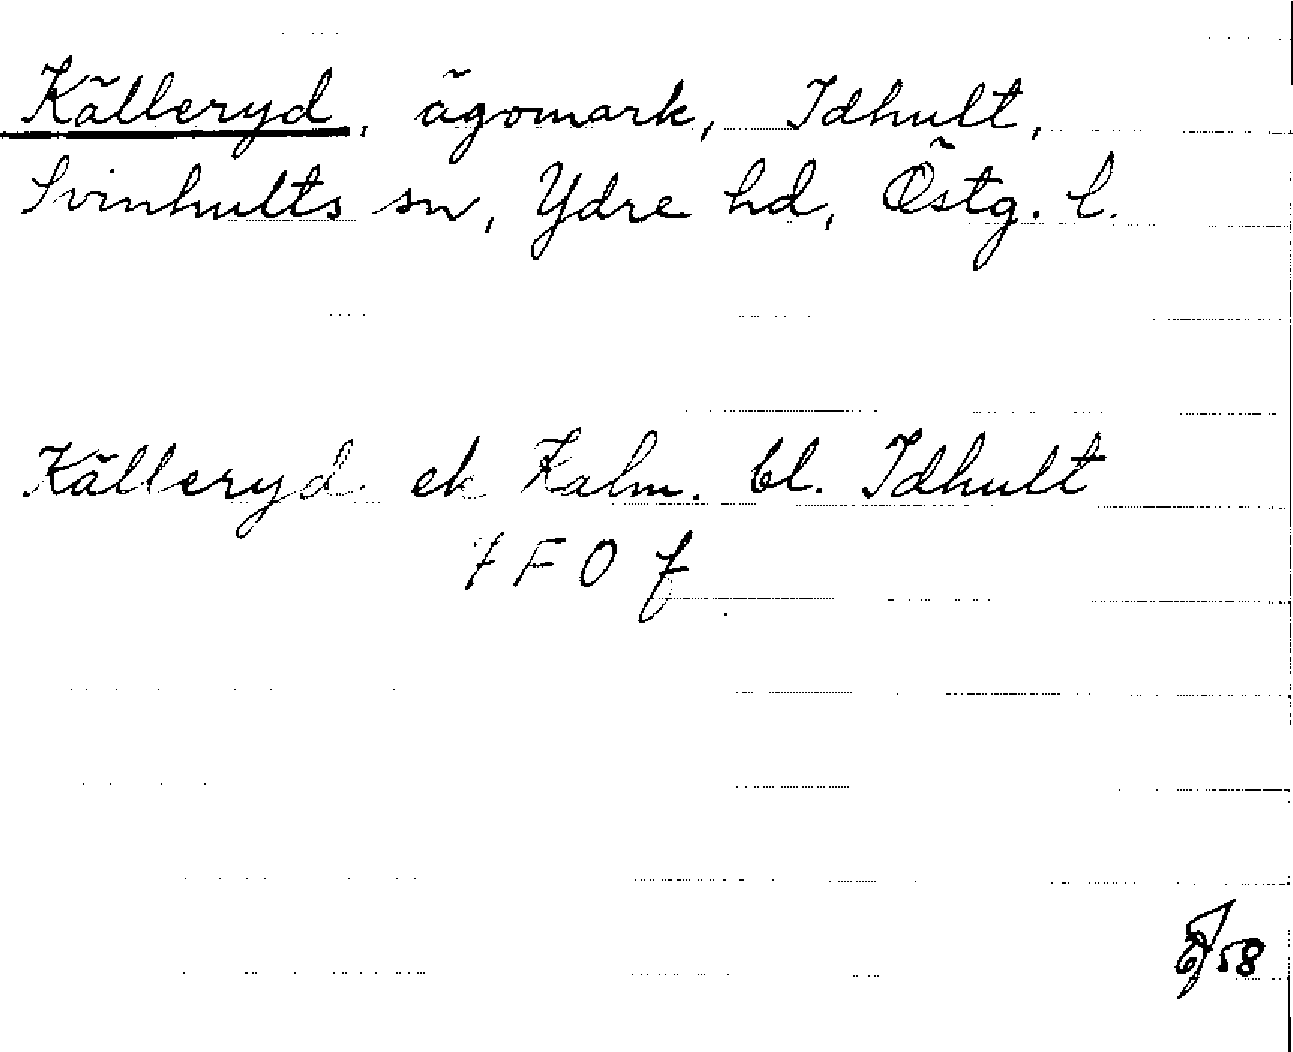 Källeryd, ägomark, Idhult,
Svinhults sn, Ydre hd, Östg. l.
Källeryd ek Kalm. bl. Idhult
7 F O f
58